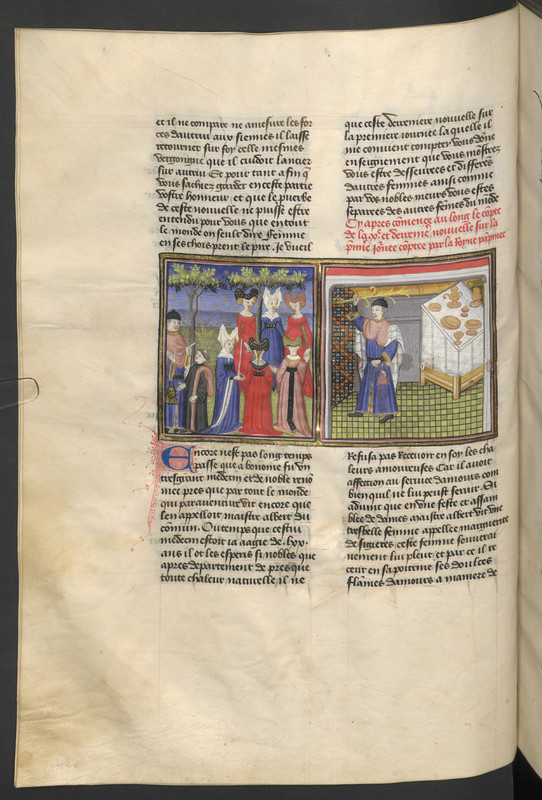 et il ne compare ne amesure les for
ces dautrui aux siennes il laisse
retourner sur soy celle mesmes
vergongne que il cuidoit lancier
sur autrui Et pour tant a fin q
vous sachiez garder en ceste partie
vostre honneur et que le puerbe
de ceste nouvelle ne puisse estre
entendu pour vous que en tout
le monde on seule dire femme
en ses chois prent le pire Je vueil
que ceste derreniere nouvelle sur
la premiere iournee la quelle il
me convient compter vous done
enseignement que vous mostrez
vous estre dessevrees et differes
dautres femmes ainsi comme
par vos nobles meurs vous estes
separees des autres femes du mode
Cy apres comence au long le copte
de la xe et derreniere nouvelle sur la
pmiere Jornee coptee par la Royne papinee
Encore nest pas long temps
passe que a bonoime fu vn
tresgrant medecin et de noble reno
mee pres que par tout le monde
qui paravanture vit encore que
len appelloit maistre albert du
comun. Ou temps que cestui
medecin estoit en aage de .lxx.
ans il ot les esperis si nobles que
apres departement de pres que
toute chaleur naturelle il ne
Refusa pas Recevoir en soy les cha
leurs amoureuses Car il avoit
affection au service damours com
bien quil ne lui peust servir Si
advint que en vne feste et assam
blee de dames maistre albert vit vne
tresbelle femme appellee marguerite
de sigieres ceste femme souverai
nement lui pleut et par ce il re
ceut en sa poitrine ses doulces
flames damours a maniere de